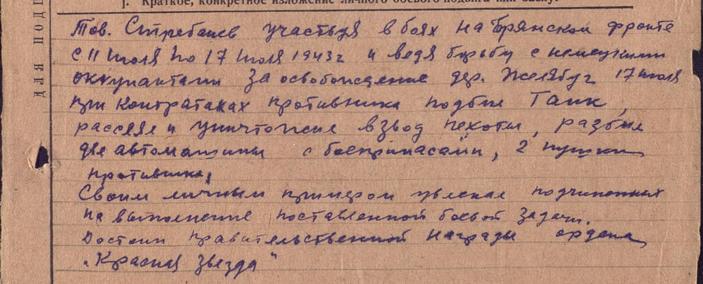 I. Краткое, конкретное изложение личного боевого подвига или заслуг.
Тов. участвуя в боях на Брянском фронте
с 11 июля по 17 июля 1943г и ведя борьбу с немецкими
оккупантами за освобождение дер. Желябуг 17 июля
при контратаках противника подбил танк,
рассеял и уничтожил взвод пехоты, разбил
две автомашины с боеприпасами, 2 пушки
противника.
Своим личным примером увлекал подчиненных
на выполнение поставленной боевой задачи.
Достоин правительственной награды ордена
„Красная Звезда"
для под